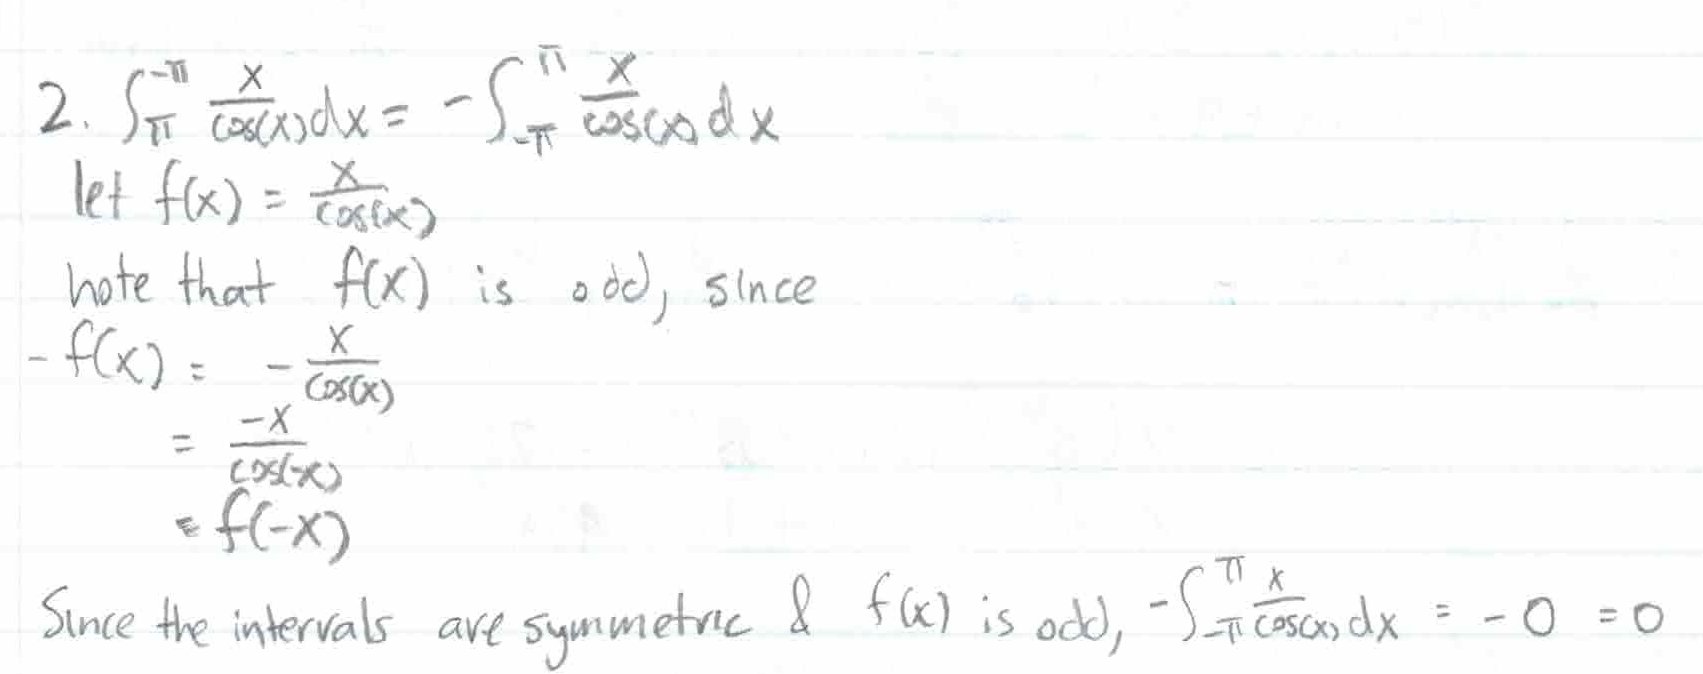 2. ∫_π^{-π} x/cos(x) dx = -∫_{-π}^{π} x/cos(x) dx
let f(x) = x/cos(x)
note that f(x) is odd, since
-f(x) = - x/cos(x)
= -x/cos(-x)
= f(-x)
Since the intervals are symmetric & f(x) is odd, -∫_{-π}^{π} x/cos(x) dx = -0 = 0